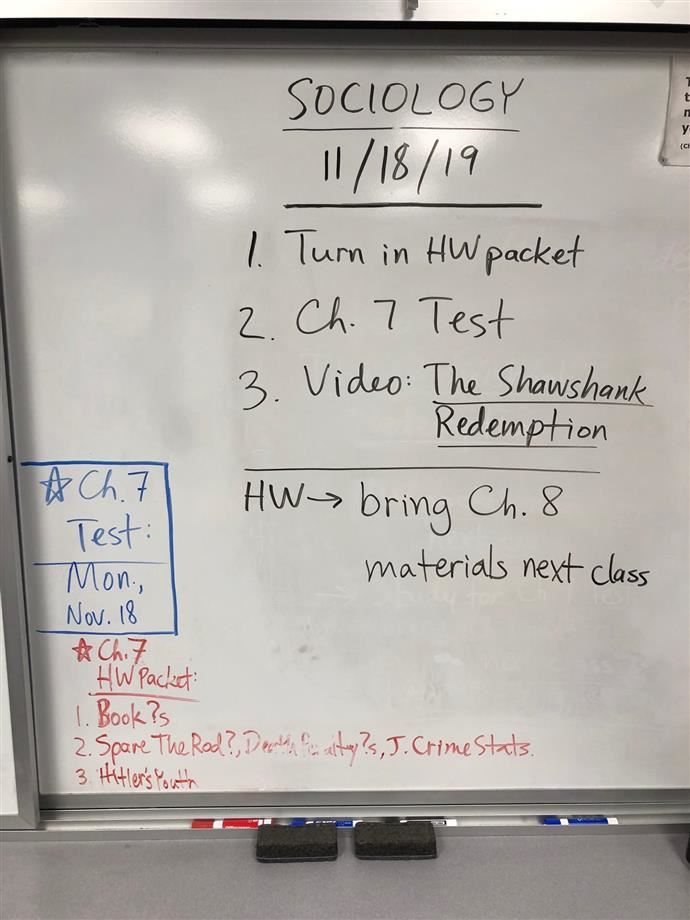 SOCIOLOGY
11/18/19
1. Turn in HW packet
2. Ch. 7 Test
3. Video: The Shawshank
Redemption
HW → bring Ch. 8
materials next class
☆ Ch. 7
Test:
Mon.,
Nov. 18
☆ Ch. 7
HW Packet:
1. Book ?s
2. Spare The Rod?, Death Penalty ?s, J. Crime Stats.
3. Hitler's Youth